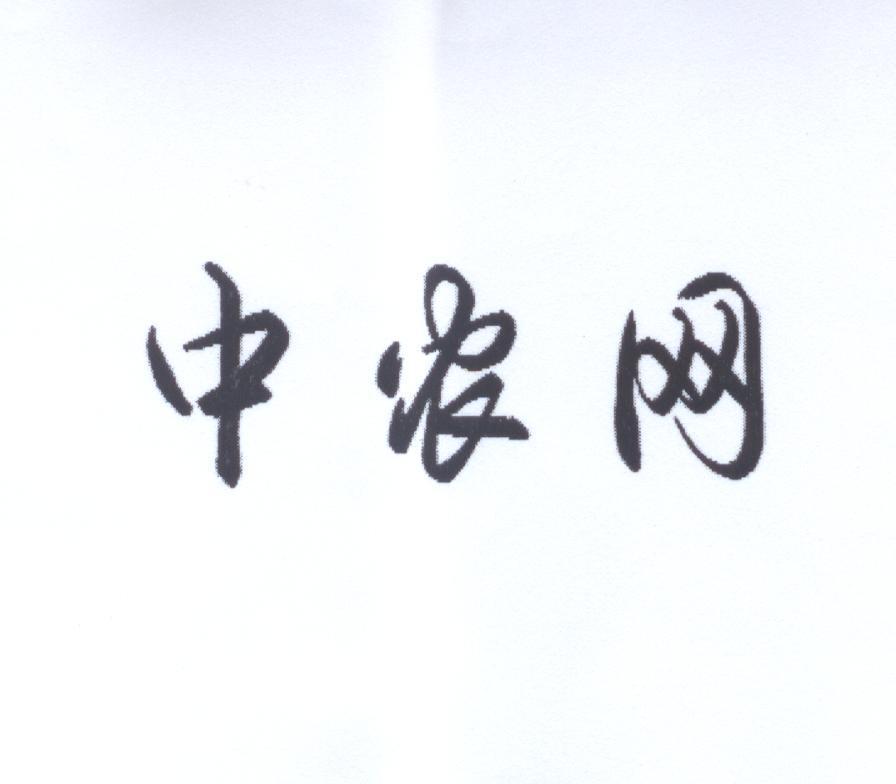 中农网